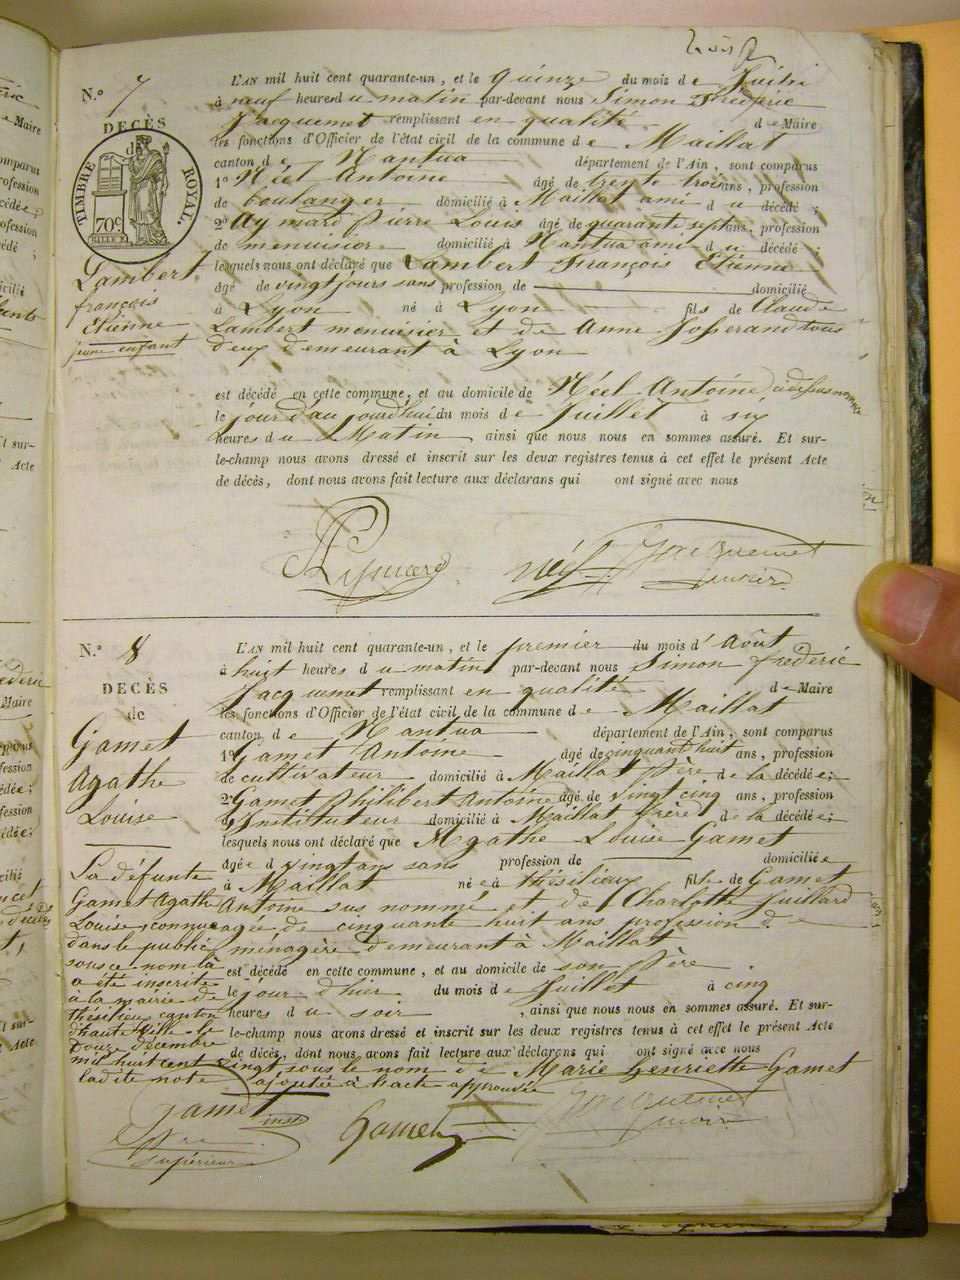 N.º 7
DÉCÈS
d
TIMBRE ROYAL
70c
Lambert
françois
Etiènne
jeune enfant
L'AN mil huit cent quarante-un, et le quinze du mois de Juillet
à neuf heures du matin par-devant nous Simon Frédéric
Jacquemet remplissant en qualité de Maire
les fonctions d'Officier de l'état civil de la commune de Maillat
canton de Nantua département de l'Ain, sont comparus
1º Néel Antoine âgé de trente trois ans, profession
de boulanger domicilié à Maillat ami du décédé;
2º Aymard Pierre Louis âgé de quarante sept ans, profession
de menuisier domicilié à Nantua ami du décédé;
lesquels nous ont déclaré que Lambert François Etiènne
âgé de vingt jours sans profession de domicilié
à Lyon né à Lyon fils de Claude
Lambert menuisier et de Anne Josserand tous
deux demeurant à Lyon
est décédé en cette commune, et au domicile de Néel Antoine ci dessus nommé
le jour d'aujourd'hui du mois de Juillet à six
heures du Matin ainsi que nous nous en sommes assuré. Et sur-
le-champ nous avons dressé et inscrit sur les deux registres tenus à cet effet le présent Acte
de décès, dont nous avons fait lecture aux déclarans qui ont signé avec nous
Aymard Néel Jacquemet
maire
N.º 8
DÉCÈS
de
Gamet
Agathe
Louise
L'AN mil huit cent quarante-un, et le premier du mois d'Août
à huit heures du matin par-devant nous Simon frédéric
Jacquemet remplissant en qualité de Maire
les fonctions d'Officier de l'état civil de la commune de Maillat
canton de Nantua département de l'Ain, sont comparus
1º Gamet Antoine âgé de cinquant huit ans, profession
de cultivateur domicilié à Maillat Père de la décédée;
2º Gamet Philibert Antoine âgé de vingt cinq ans, profession
d'Instituteur domicilié à Maillat frère de la décédée;
lesquels nous ont déclaré que Agathe Louise Gamet
âgée de vingt ans sans profession de domiciliée
à Maillat née à thésilieux fille de Gamet
Antoine sus nommé et de Charlotte Juillard
agée de cinquante huit ans profession de
ménagère demeurant à Maillat
est décédé en cette commune, et au domicile de son Père
le jour d'hier du mois de Juillet à cinq
heures du soir, ainsi que nous nous en sommes assuré. Et sur-
le-champ nous avons dressé et inscrit sur les deux registres tenus à cet effet le présent Acte
de décès, dont nous avons fait lecture aux déclarans qui ont signé avec nous
La défunte
Gamet Agathe
Louise connue
dans le public
sous ce nom là
a été inscrite
à la mairie de
thésilieu canton
d'hauteville le
Douze décembre
mil huit cent vingt, sous le nom de Marie henriette Gamet
ladite note ajoutée à l'acte approuvée
Gamet
inst
supérieur
Gamet
Jacquemet
maire